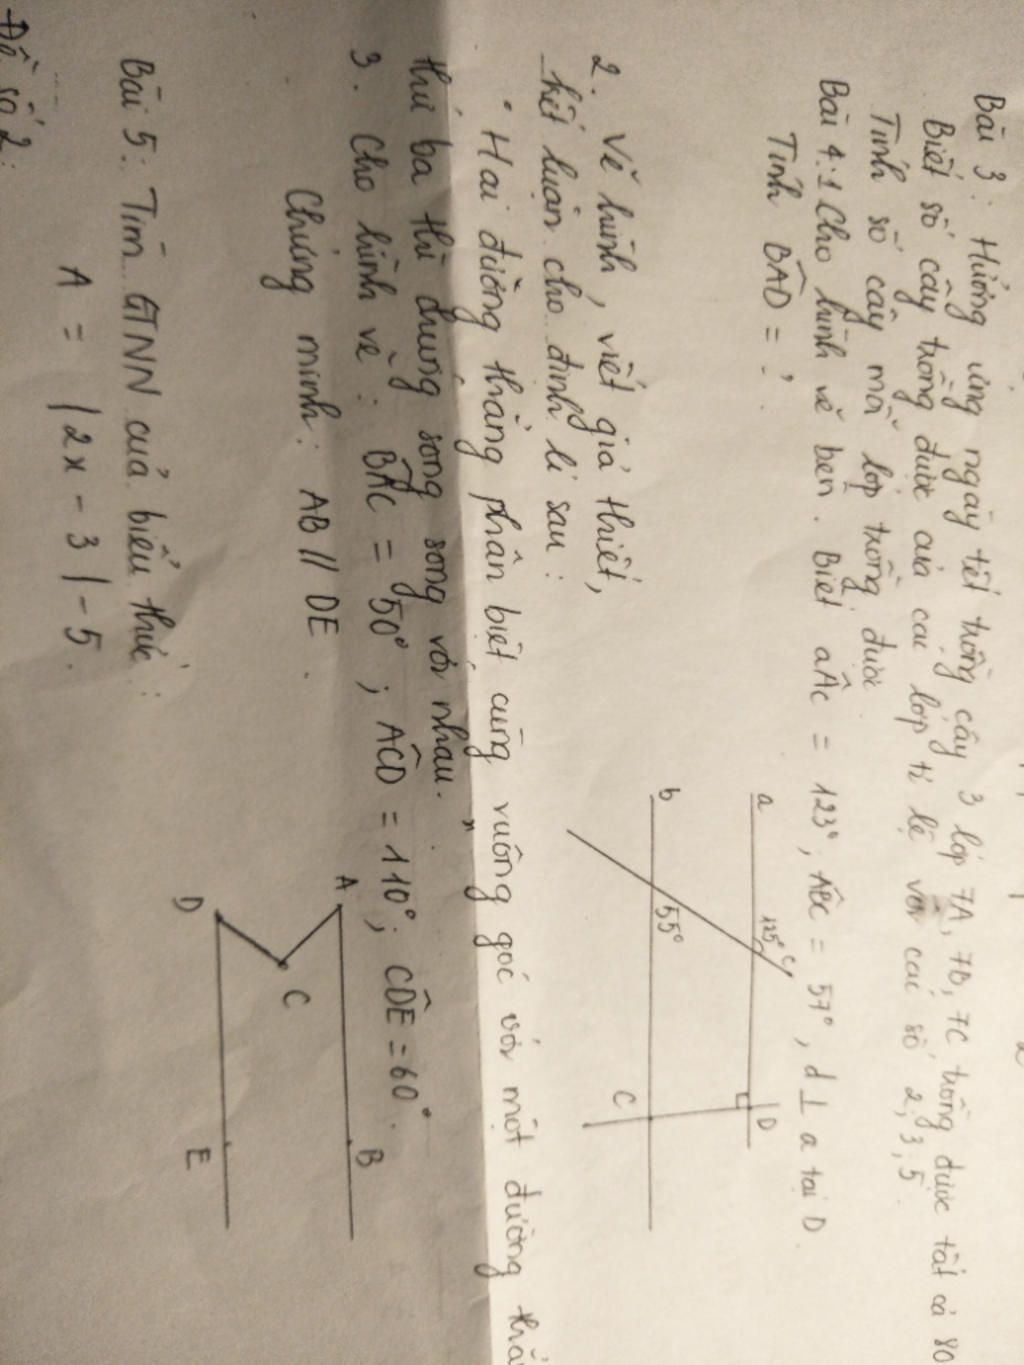 Bài 3: Hưởng ứng ngày tết trồng cây 3 lớp 7A, 7B, 7C trồng được tất cả 80
Biết số cây trồng được của các lớp tỉ lệ với các số 2, 3, 5.
Tính số cây mỗi lớp trồng được
Bài 4: 1 Cho hình vẽ bên. Biết aÂc = 123°, ABC = 57°, d ⊥ a tại D.
Tính BÂD = ?
a
125°
C
D
b
55°
C
2. Vẽ hình, viết giả thiết,
kết luận cho định lí sau:
" Hai đường thẳng phân biệt cùng vuông góc với một đường thẳ
thứ ba thì chúng song song với nhau. "
3. Cho hình vẽ: BÂC = 50°; AĈD = 110°; CD̂E = 60°.
Chứng minh: AB // DE.
A
B
C
D
E
Bài 5: Tìm GTNN của biểu thức:
A = |2x - 3| - 5.
Đề số 2: